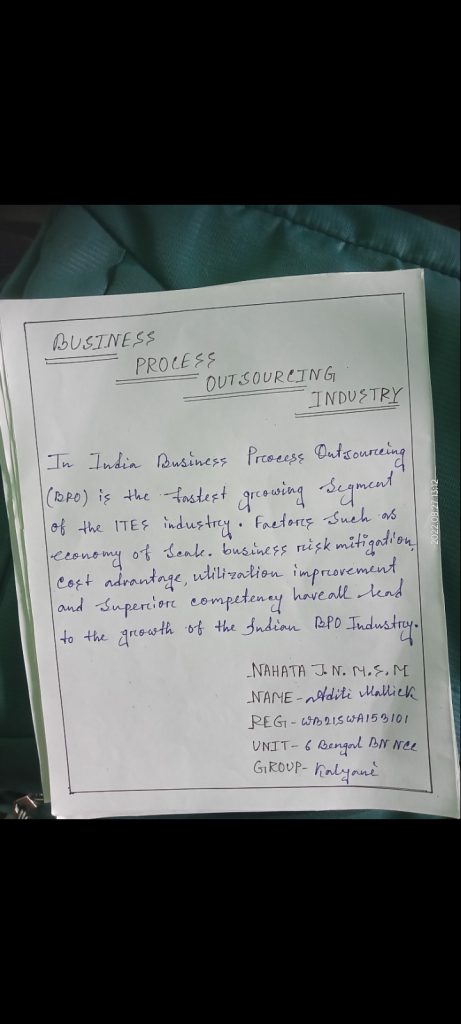 BUSINESS
PROCESS
OUTSOURCING
INDUSTRY
In India Business Process Outsourcing
(BPO) is the fastest growing Segment
of the ITES industry. Factors Such as
economy of Scale. business risk mitigation,
cost advantage, utilization improvement
and Superior competency have all lead
to the growth of the Indian BPO Industry.
NAHATA J.N.M.S.M
NAME - Aditi Mallick
REG - WB21SWA153101
UNIT - 6 Bengal BN NCC
GROUP - Kalyani
2022.08.27 13:12